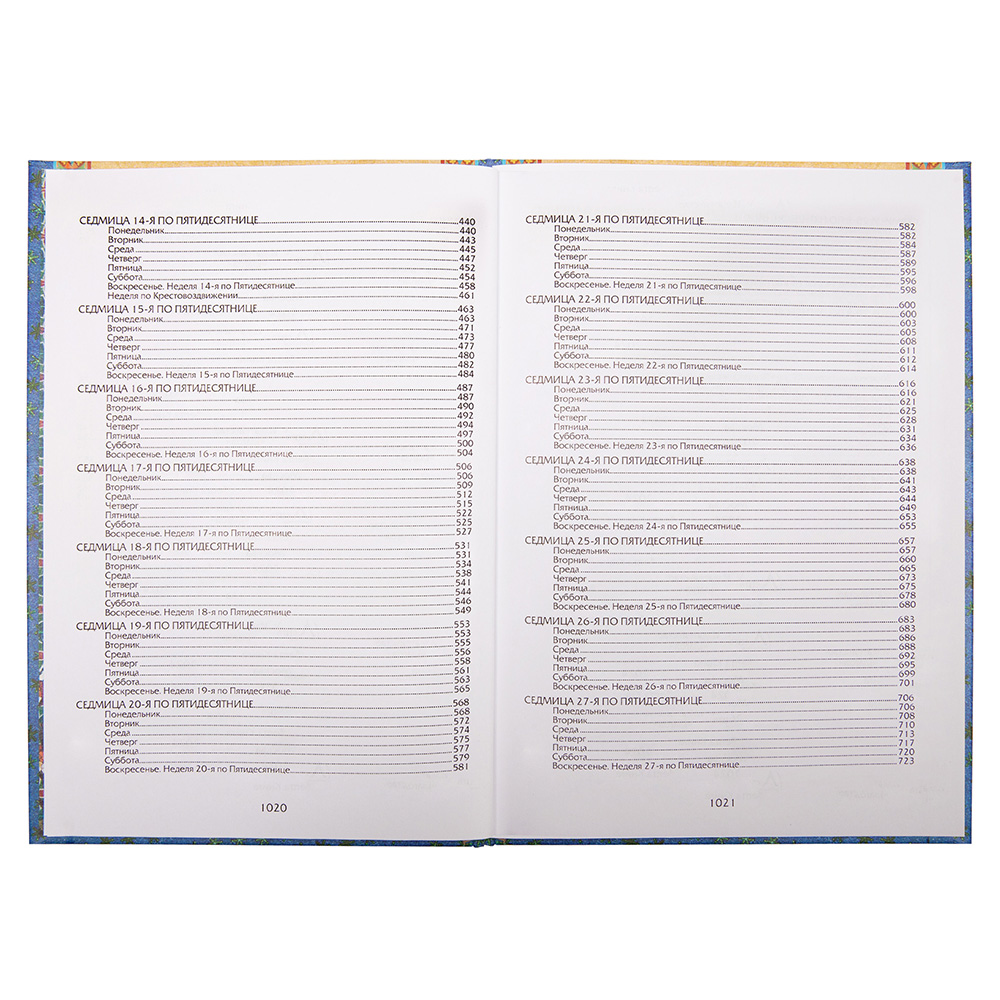 СЕДМИЦА 14-Я ПО ПЯТИДЕСЯТНИЦЕ 440
Понедельник 440
Вторник 443
Среда 445
Четверг 447
Пятница 452
Суббота 454
Воскресенье. Неделя 14-я по Пятидесятнице 458
Неделя по Крестовоздвижении 461
СЕДМИЦА 15-Я ПО ПЯТИДЕСЯТНИЦЕ 463
Понедельник 463
Вторник 471
Среда 473
Четверг 477
Пятница 480
Суббота 482
Воскресенье. Неделя 15-я по Пятидесятнице 484
СЕДМИЦА 16-Я ПО ПЯТИДЕСЯТНИЦЕ 487
Понедельник 487
Вторник 490
Среда 492
Четверг 494
Пятница 497
Суббота 500
Воскресенье. Неделя 16-я по Пятидесятнице 504
СЕДМИЦА 17-Я ПО ПЯТИДЕСЯТНИЦЕ 506
Понедельник 506
Вторник 509
Среда 512
Четверг 515
Пятница 522
Суббота 525
Воскресенье. Неделя 17-я по Пятидесятнице 527
СЕДМИЦА 18-Я ПО ПЯТИДЕСЯТНИЦЕ 531
Понедельник 531
Вторник 534
Среда 538
Четверг 541
Пятница 544
Суббота 546
Воскресенье. Неделя 18-я по Пятидесятнице 549
СЕДМИЦА 19-Я ПО ПЯТИДЕСЯТНИЦЕ 553
Понедельник 553
Вторник 555
Среда 556
Четверг 558
Пятница 561
Суббота 563
Воскресенье. Неделя 19-я по Пятидесятнице 565
СЕДМИЦА 20-Я ПО ПЯТИДЕСЯТНИЦЕ 568
Понедельник 568
Вторник 572
Среда 574
Четверг 575
Пятница 577
Суббота 579
Воскресенье. Неделя 20-я по Пятидесятнице 581
1020
СЕДМИЦА 21-Я ПО ПЯТИДЕСЯТНИЦЕ 582
Понедельник 582
Вторник 584
Среда 587
Четверг 589
Пятница 595
Суббота 596
Воскресенье. Неделя 21-я по Пятидесятнице 598
СЕДМИЦА 22-Я ПО ПЯТИДЕСЯТНИЦЕ 600
Понедельник 600
Вторник 603
Среда 605
Четверг 608
Пятница 611
Суббота 612
Воскресенье. Неделя 22-я по Пятидесятнице 614
СЕДМИЦА 23-Я ПО ПЯТИДЕСЯТНИЦЕ 616
Понедельник 616
Вторник 621
Среда 625
Четверг 628
Пятница 631
Суббота 634
Воскресенье. Неделя 23-я по Пятидесятнице 636
СЕДМИЦА 24-Я ПО ПЯТИДЕСЯТНИЦЕ 638
Понедельник 638
Вторник 641
Среда 643
Четверг 644
Пятница 649
Суббота 653
Воскресенье. Неделя 24-я по Пятидесятнице 655
СЕДМИЦА 25-Я ПО ПЯТИДЕСЯТНИЦЕ 657
Понедельник 657
Вторник 660
Среда 665
Четверг 673
Пятница 675
Суббота 678
Воскресенье. Неделя 25-я по Пятидесятнице 680
СЕДМИЦА 26-Я ПО ПЯТИДЕСЯТНИЦЕ 683
Понедельник 683
Вторник 686
Среда 688
Четверг 692
Пятница 695
Суббота 699
Воскресенье. Неделя 26-я по Пятидесятнице 701
СЕДМИЦА 27-Я ПО ПЯТИДЕСЯТНИЦЕ 706
Понедельник 706
Вторник 708
Среда 710
Четверг 713
Пятница 717
Суббота 720
Воскресенье. Неделя 27-я по Пятидесятнице 723
1021